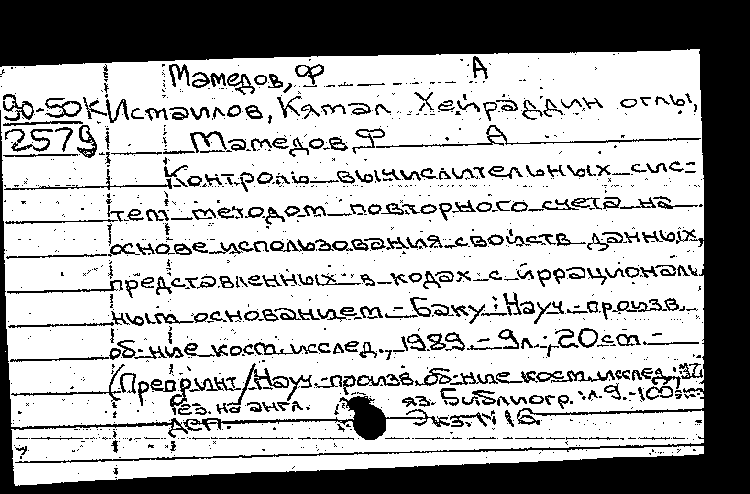 Мамедов, Ф А
90-50К Исмаилов, Кямал Хейраддин оглы,
2579 Мамедов, Ф А
Контроль вычислительных сис-
тем методом повторного счета на
основе использования свойств данных,
представленных в кодах с иррациональ
ным основанием.-Баку: Науч.-произв.
об-ние косм. исслед., 1989.-9л.; 20см.-
(Препринт/Науч.-произв. об-ние косм. исслед.;
Рез. на англ. яз. Библиогр.: л.9.-100экз
Деп. Экз. N 16.